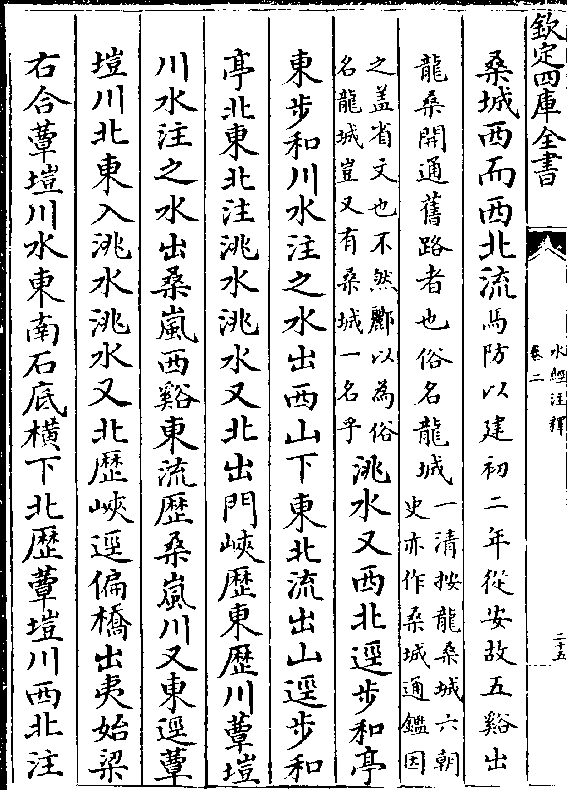 欽定四庫全書
水經注釋
卷二
二十五
桑城西而西北流馬防以建初二年從安故五谿出
龍桑開通舊路者也俗名龍城一清按龍桑城六朝
史亦作桑城通鑑因
之盖省文也不然酈以為俗
名龍城豈又有桑城一名乎洮水又西北逕步和亭
東步和川水注之水出西山下東北流出山逕步和
亭北東北注洮水洮水又北出門峽歷東歷川蕈塏
川水注之水出桑嵐西谿東流歷桑嵐川又東逕蕈
塏川北東入洮水洮水又北歷峽逕偏橋出夷始梁
右合蕈塏川水東南石底橫下北歷蕈塏川西北注